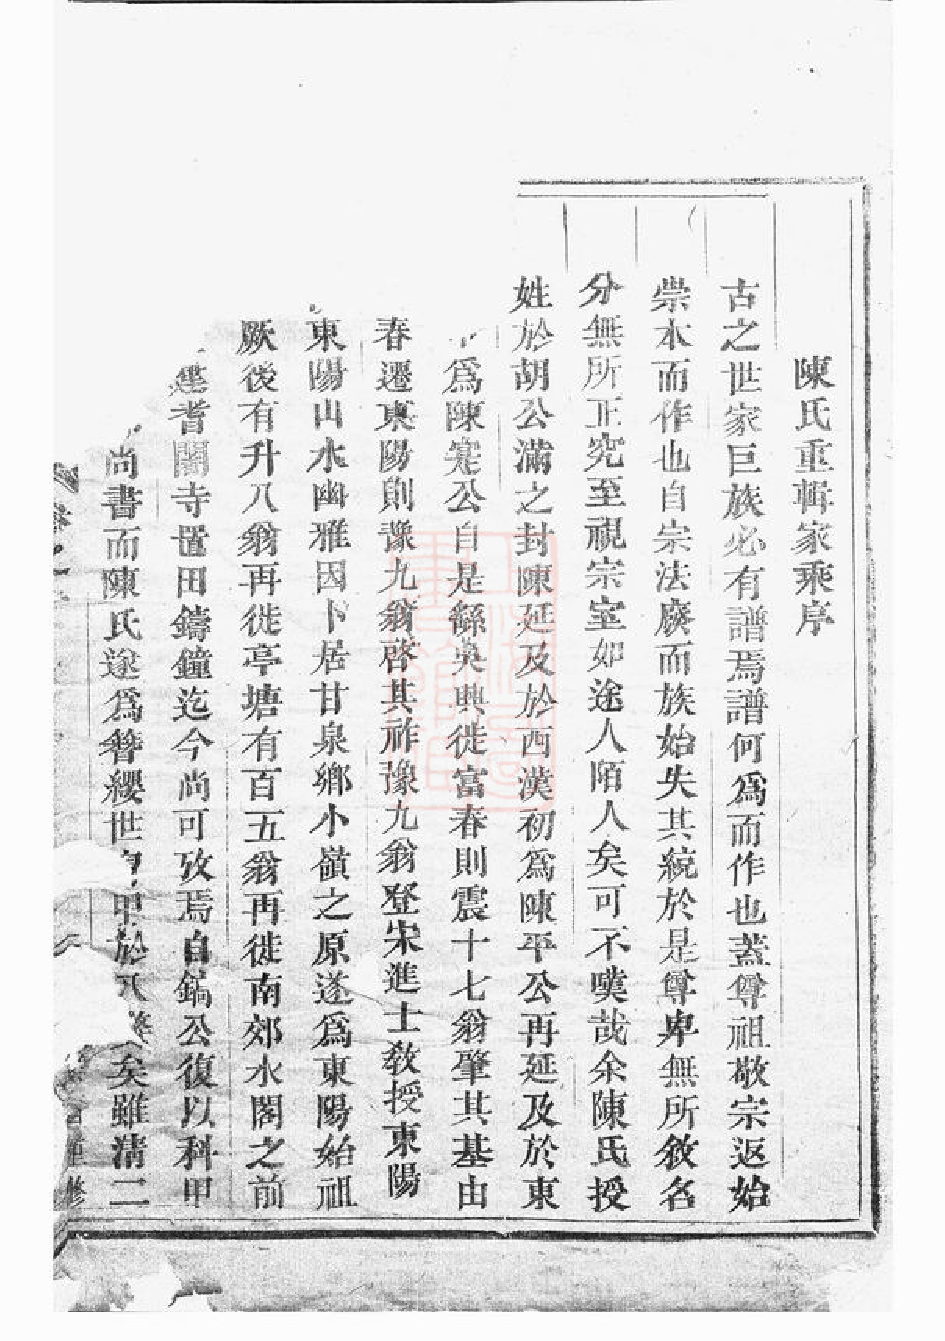 陳氏重輯家乘序
古之世家巨族必有譜焉譜何為而作也蓋尊祖敬宗返始
崇本而作也自宗法廢而族始失其統於是尊卑無所敘名
分無所正究至視宗室如途人陌人矣可不嘆哉余陳氏授
姓於胡公滿之封陳延及於西漢初為陳平公再延及於東
為陳寔公自是繇吳興徙富春則震十七翁肇其基由
春遷東陽則豫九翁啓其祚豫九翁登宋進士教授東陽
東陽山水幽雅因卜居甘泉鄉小嶺之原遂為東陽始祖
厥後有升八翁再徙亭塘有百五翁再徙南郊水閣之前
建耆闍寺置田鑄鐘迄今尚可攷焉自鎬公復以科甲
尚書而陳氏遂為簪纓世 甲於 矣雖清二
修